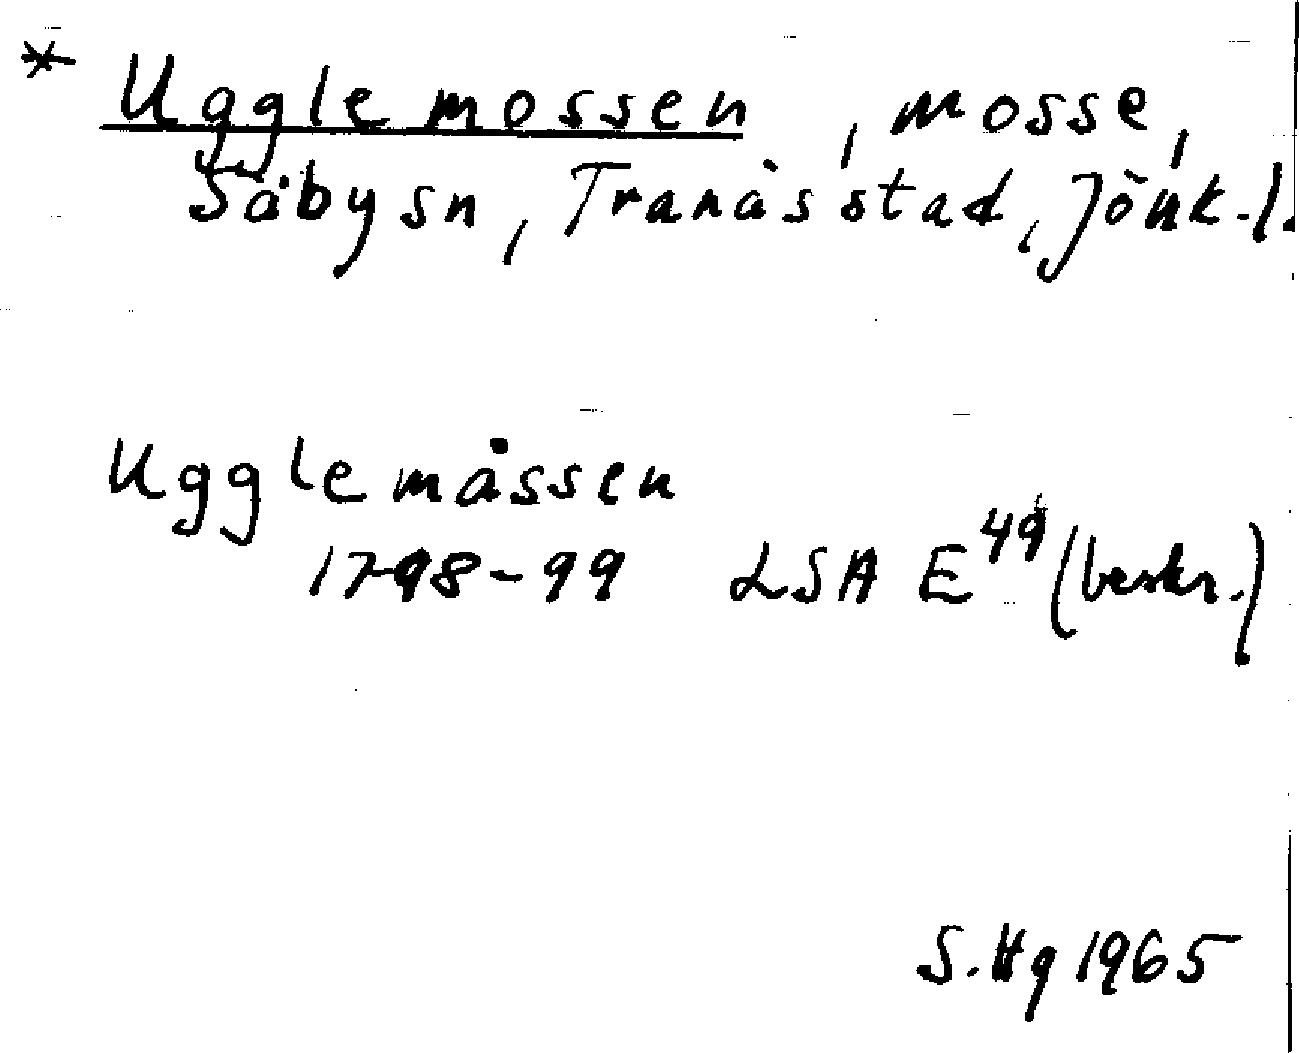 * Ugglemossen, mosse,
Säby sn, Tranås stad, Jönk. l.
Ugglemåssen
1798-99 LSA E 49 (beskr.)
S. Hg 1965